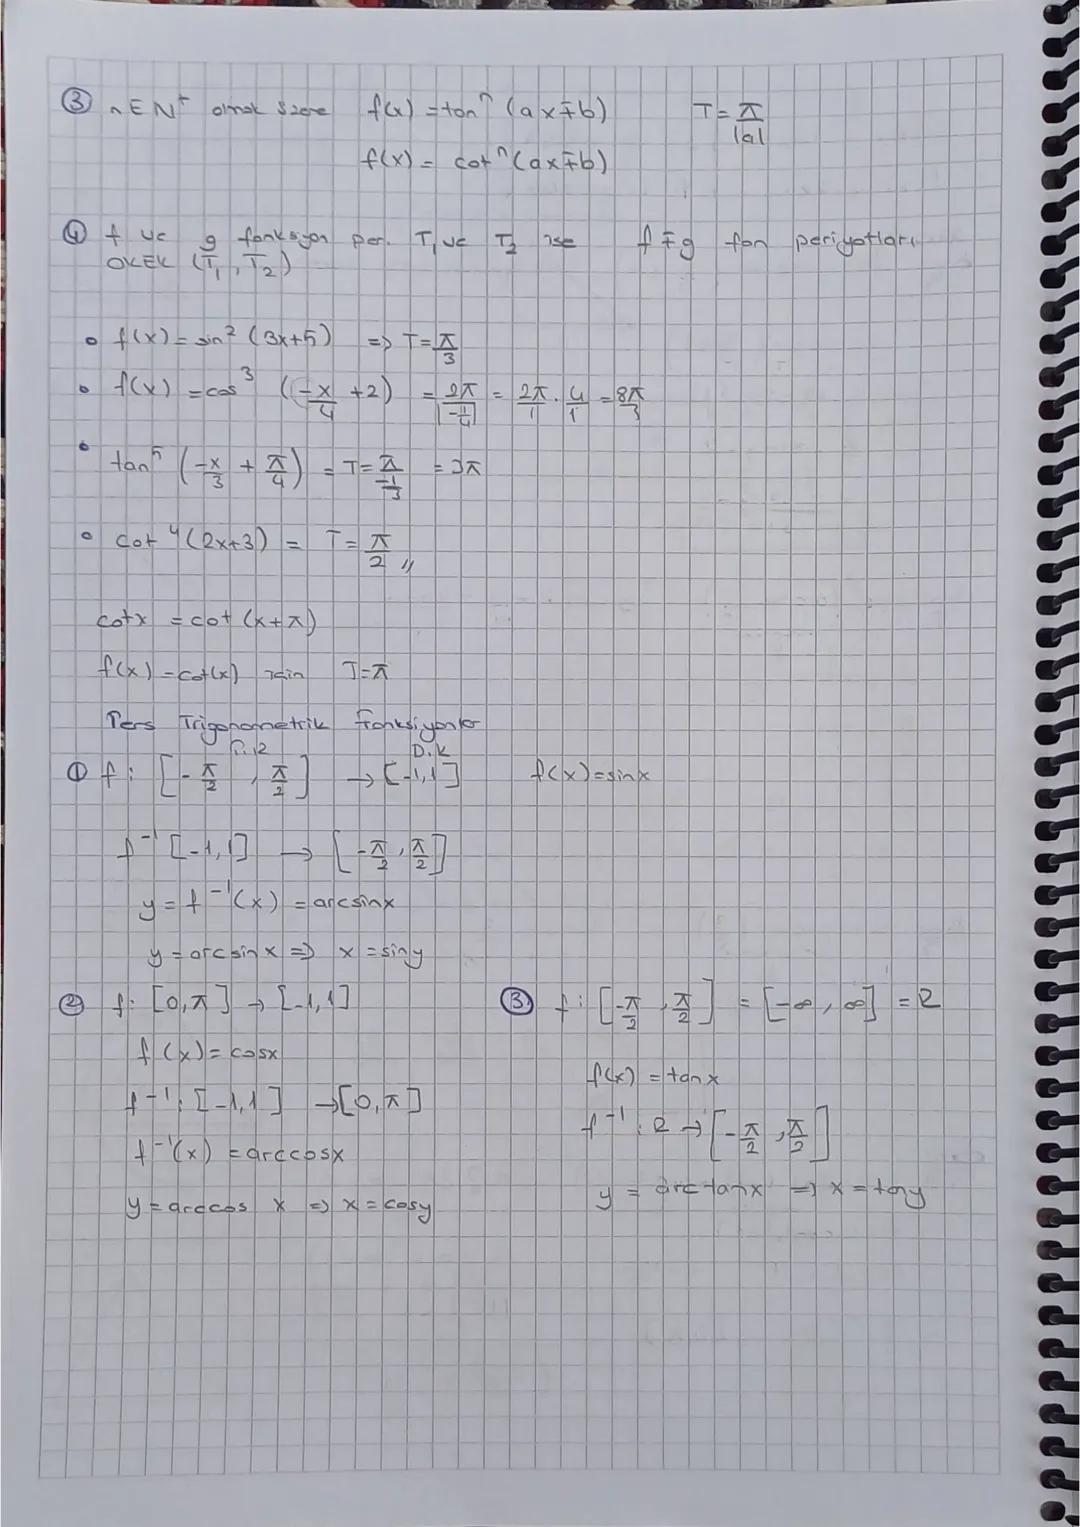 ③ n∈N⁺ olmak üzere f(x) = tanⁿ (ax∓b) T = π/|a|
f(x) = cotⁿ(ax∓b)
④ f ve g fonksiyon per. T₁ ve T₂ ise f∓g fon periyotları
OKEK (T₁, T₂)
• f(x) = sin² (3x+5) => T = π/3
• f(x) = cos³ (-x/4 + 2) = 2π/|-1/4| = 2π/1 · 4/1 = 8π/3
• tan⁵ (-x/3 + π/4) = T = π/(-1/3) = 3π
• cot⁴(2x+3) = T = π/2 //
cotx = cot (x+π)
f(x) = cot(x) için T=π
Ters Trigonometrik Fonksiyonlar
D.K
① f: [-π/2, π/2] → [-1,1] f(x) = sinx
f⁻¹ [-1,1] → [-π/2, π/2]
y = f⁻¹(x) = arcsinx
y = arcsinx => x = siny
② f: [0,π] → [-1,1]
f(x) = cosx
f⁻¹: [-1,1] → [0,π]
f⁻¹(x) = arccosx
y = arccos x => x = cosy
③ f: [-π/2, π/2] = [-∞, ∞] = R
f(x) = tanx
f⁻¹: R → [-π/2, π/2]
y = arctanx => x = tany